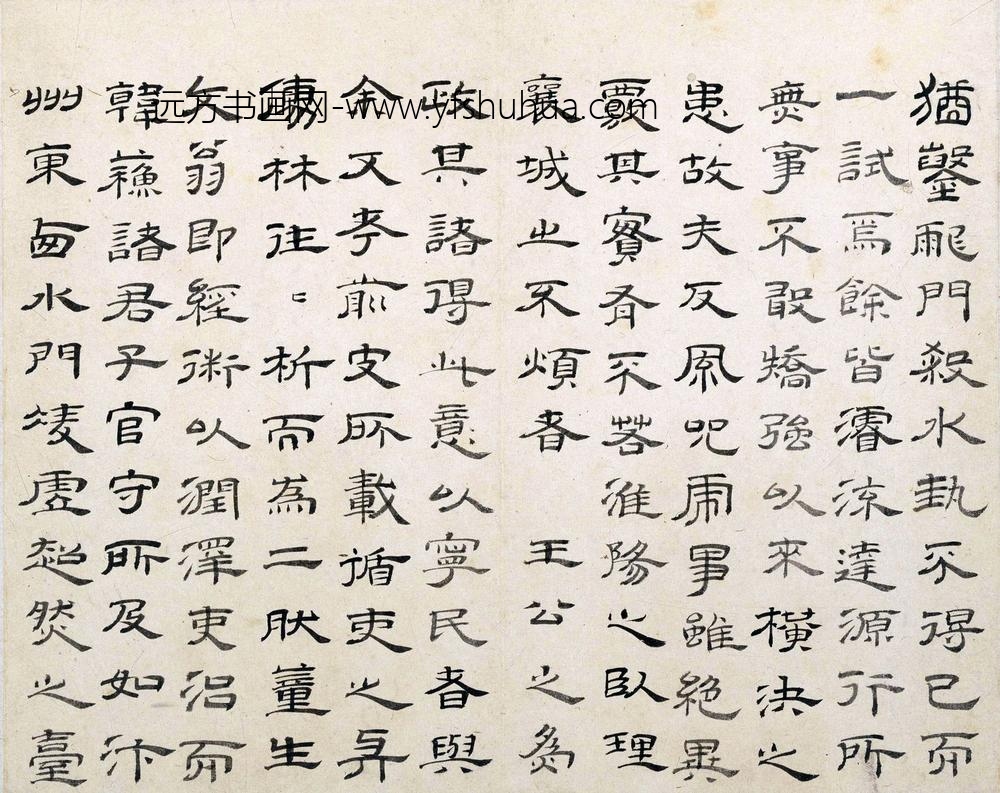 猶鑿龍門殺水埶不得已而
一試焉餘皆濬流達源行所
無事不敢矯強以來橫決之
患故夫反風呪虎事雖絕異
覈其實有不若淮陽之臥理
襄城之不煩者 王公之為
政其諸得此意以寧民者與
余又考前史所載循吏之與
儒林往〻析而為二肰董生
文翁即經術以潤澤吏治而
韓蘇諸君子官守所及如汴
州東西水門凌虛超然之臺
远方书画网-www.yfshuhua.com